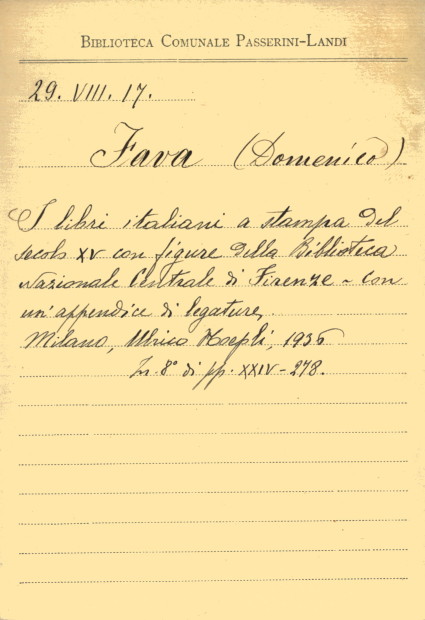 BIBLIOTECA COMUNALE PASSERINI-LANDI
29. VIII. 17.
Fava (Domenico)
I libri italiani a stampa del
secolo XV con figure della Biblioteca
Nazionale Centrale di Firenze - con
un'appendice di legature,
Milano, Ulrico Hoepli, 1936
In 8° di pp. XXIV-278.